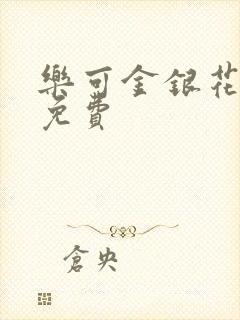 樂可金銀花
免費
倉央